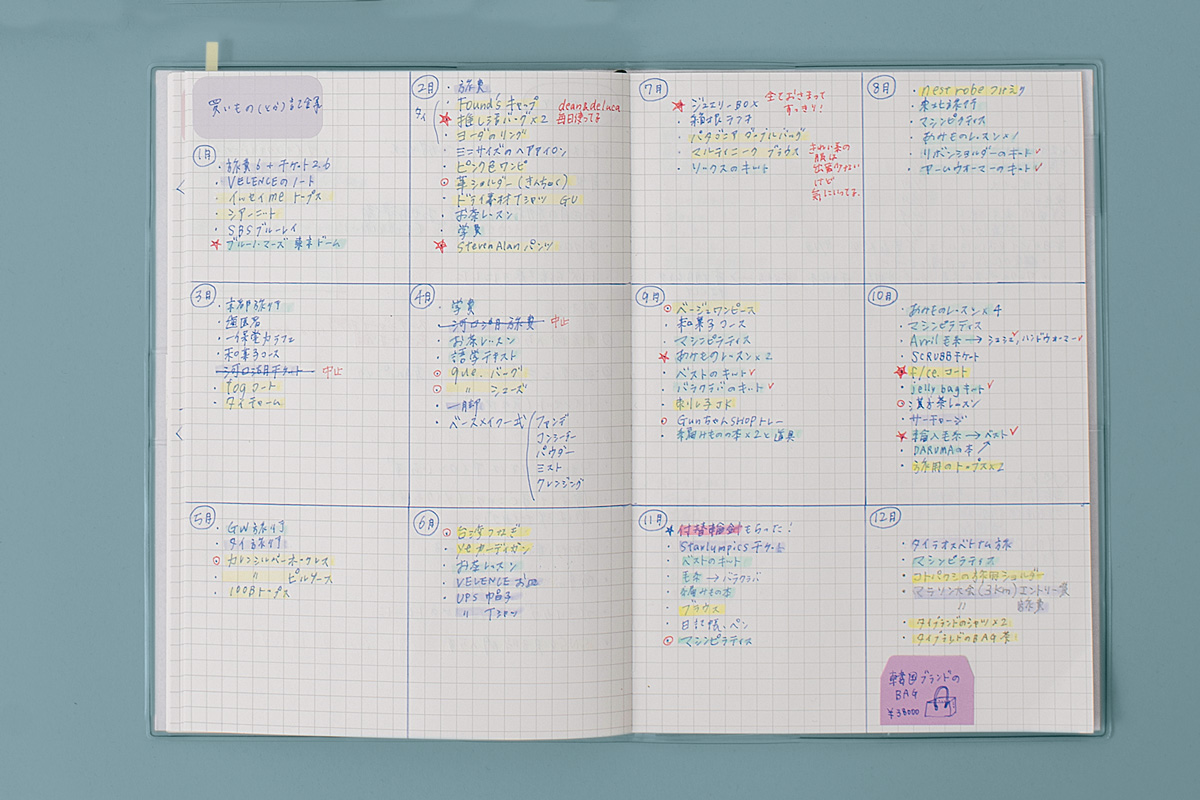 買いもの(とか)まとめ
1月
・旅費6+チケット26
・VELENCEのノート
・イッセイme トップス
・シアーニート
・SBSブルーレイ
ブルーノ・マーズ 東京ドーム
2月
・旅費
タイ
・Foundsキャップ
dean&deluca
・推し活バッグ×2
毎日使ってる
・ヨーダのリング
・ミニサイズのヘアアイロン
・ピンク色ワンピ
革ショルダー(きんちゃく)
・ドライ素材Tシャツ GU
・お茶レッスン
・学費
Steven Alan パンツ
3月
・京都旅行
・道区名
・一保堂カフェ
・和菓子コース
・河口湖チケット 中止
・togコート
・タイチャーム
4月
・学費
・河口湖旅費 中止
・お茶レッスン
・語学テキスト
que. バッグ
〃 シューズ
・一脚
・ベースメイク一式
ファンデ
コンシーラー
パウダー
ミスト
クレンジング
5月
・GW旅行
・タイ旅行
カレンシルバーネックレス
〃 ピルケース
・100Bトップス
6月
台湾つなぎ
・YE カーディガン
・お茶レッスン
・VELENCE お皿
・UPS 巾着子
・〃 Tシャツ
7月
ジュエリーBOX
全ておさまってすっきり!
・箱根ラフオ
・パタゴニア ダッフルバッグ
・マルティニーク ブラウス
きれい系の
服は
出番少ない
けど
気に入ってる。
・ソックスのキット
8月
・nest robe
・東北旅行
・マシンピラティス
・あみものレッスン×1
・リボンショルダーのキット
・アームウォーマーのキット
9月
ベージュワンピース
・和菓子コース
・マシンピラティス
あみものレッスン×2
・ベストのキット
・バラクラバのキット
・刺し子JK
GunちゃんSHOPトレー
・編みものの本×2と道具
10月
・あみものレッスン×4
・マシンピラティス
・Avril毛糸→シュシュ,ハンドウォーマー
・SCRUBBチケット
f/ce.コート
・jelly bagキット
漢方茶レッスン
・サーチャージ
輸入毛糸→ベスト
・DARUMAの本
・旅用のトップス×2
11月
付替輪針もらった!
・Starlumpicsチケット
・ベストのキット
・毛糸→バラクラバ
・編みもの本
・ブラウス
・日記帳、ペン
マシンピラティス
12月
・タイラオスベトナム旅
・マシンピラティス
・コトパクシの旅用ショルダー
・マラソン大会(3km)エントリー費
〃 旅費
・タイブランドのシャツ×2
・タイブランドのBAG
韓国ブランドの
BAG
¥38000